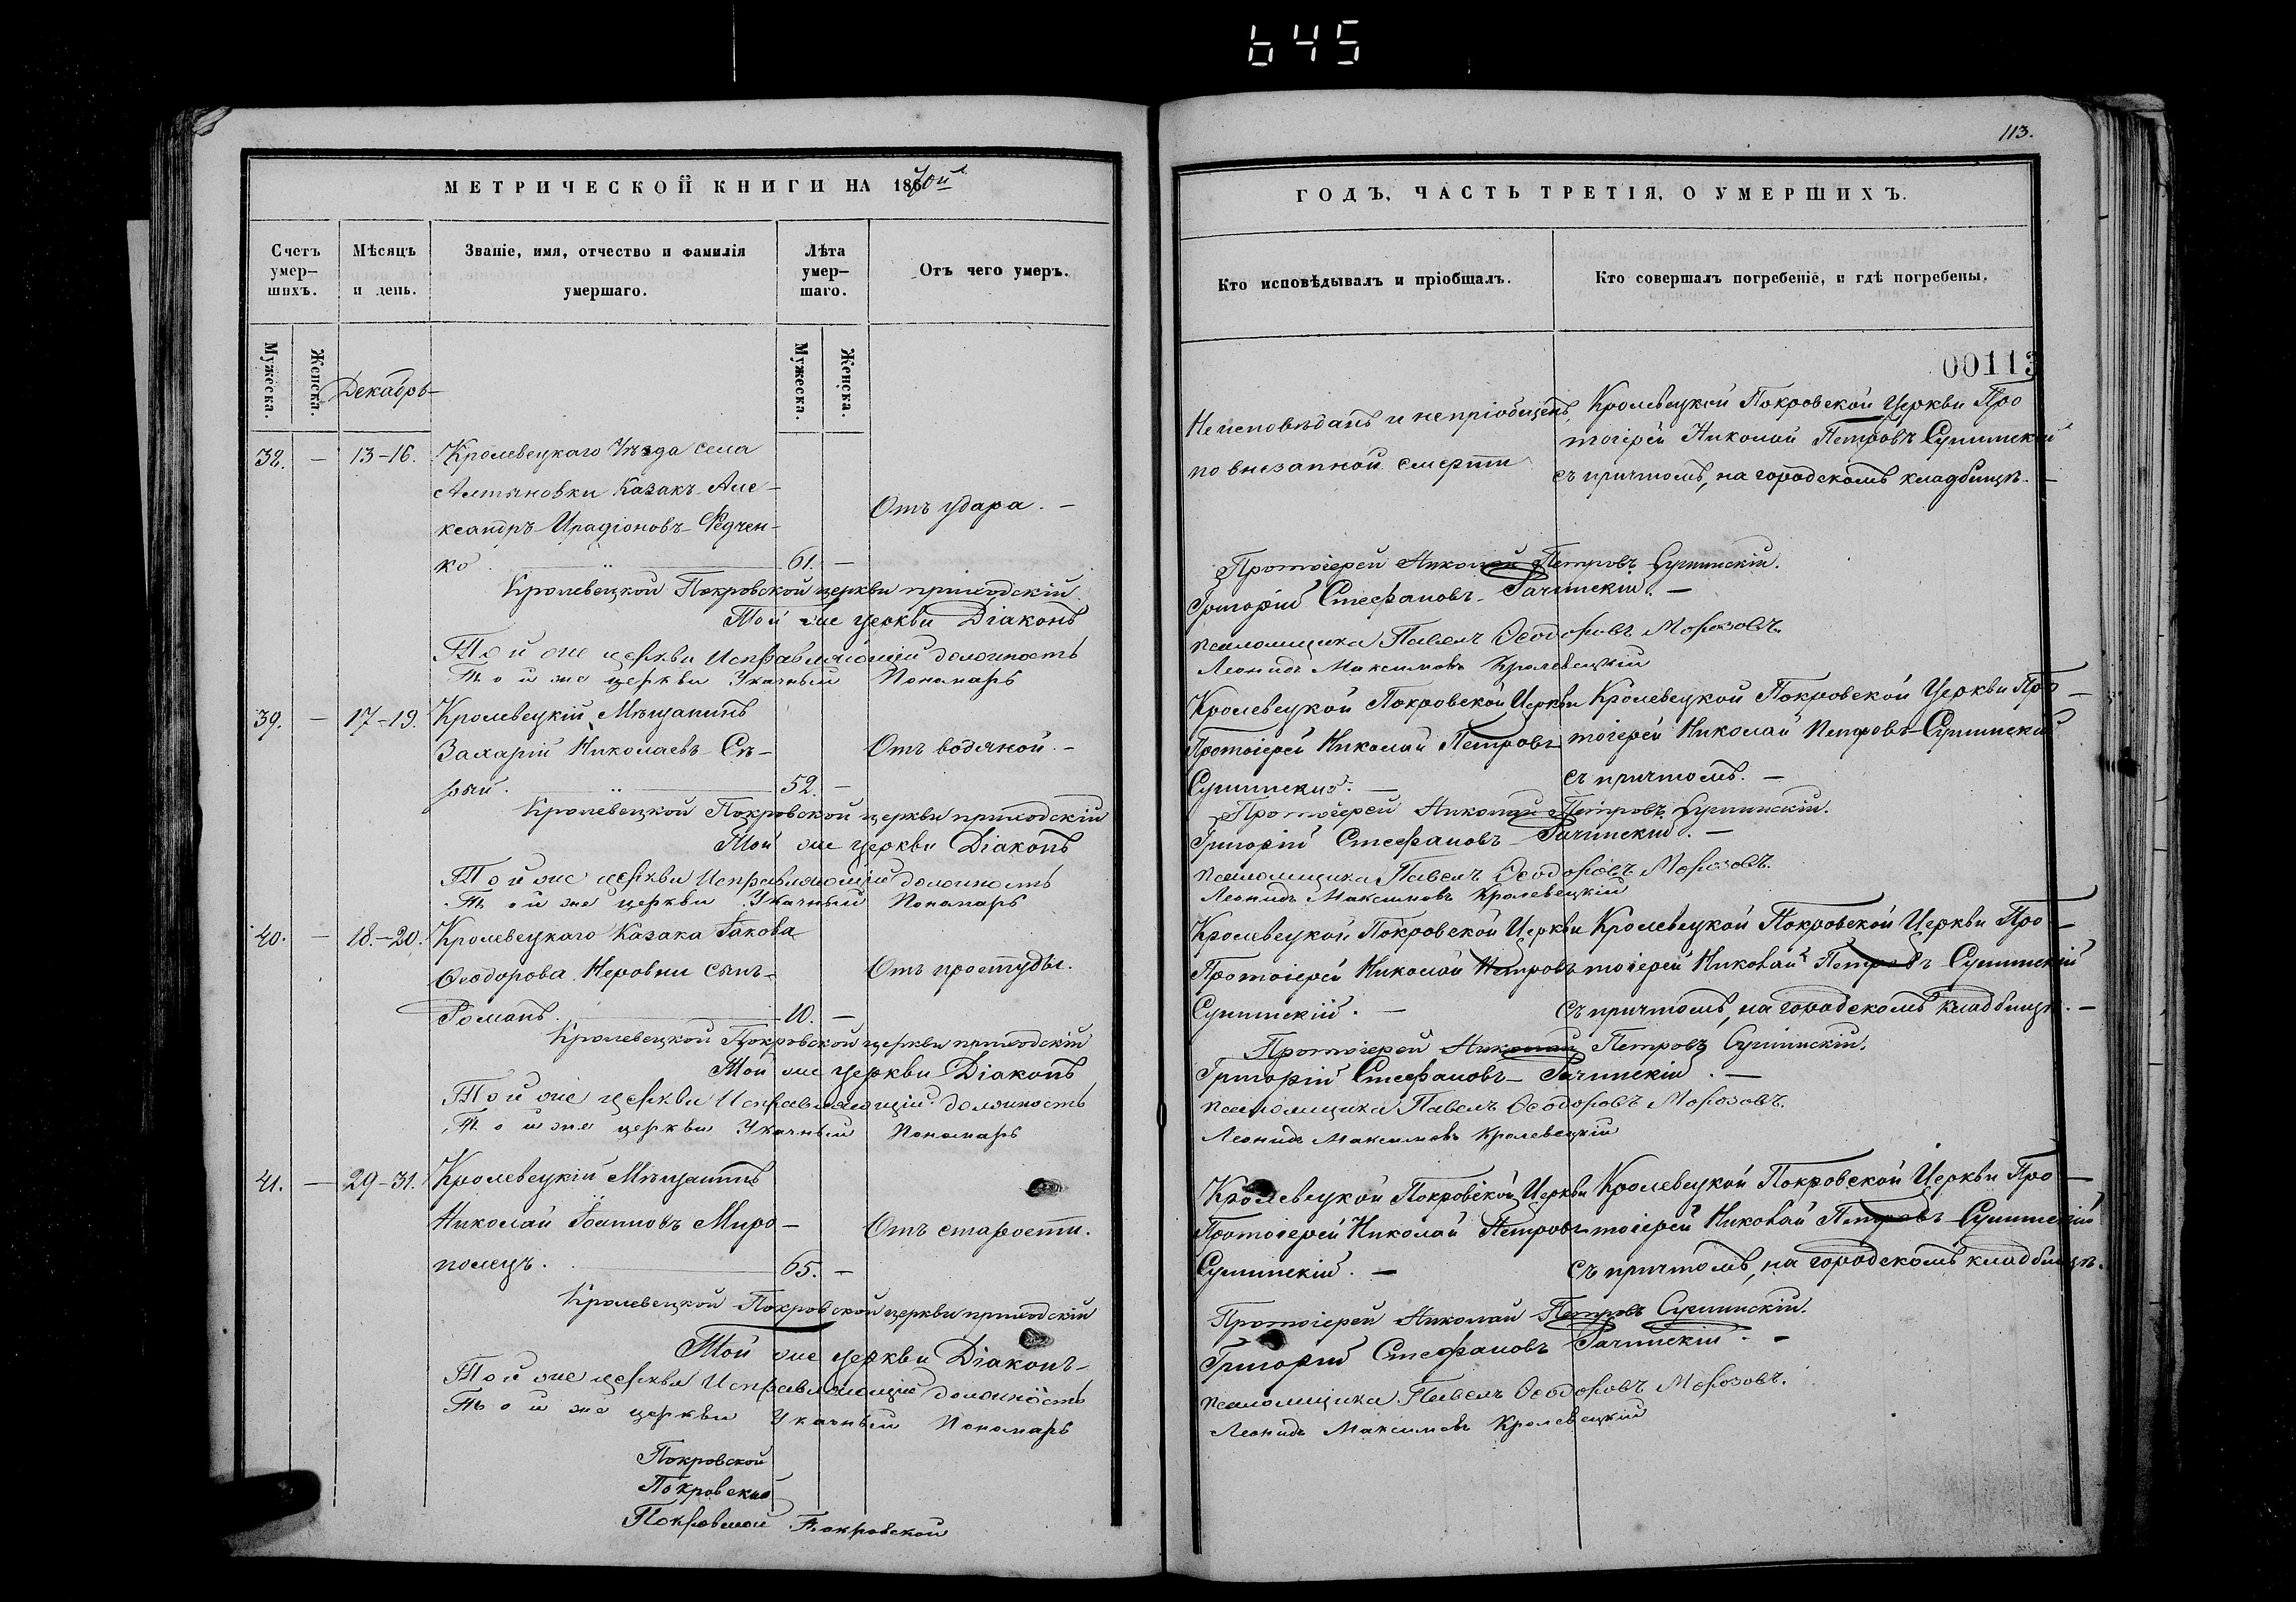 645
113.
МЕТРИЧЕСКОЙ КНИГИ НА 1870й
ГОДЪ, ЧАСТЬ ТРЕТІЯ, О УМЕРШИХЪ.
Счетъ умер-
шихъ.
Мѣсяцъ
и день.
Званіе, имя, отчество и фамилія
умершаго.
Лѣта
умер-
шаго.
Отъ чего умеръ.
Кто исповѣдывалъ и пріобщалъ.
Кто совершалъ погребеніе, и гдѣ погребены.
Мужеска.
Женска.
Мужеска.
Женска.
00113
Декабрь
38. — 13-16. Кролевецкаго Уѣзда села
Алтыновки Казакъ Але-
ксандръ Иродіоновъ Федчен-
ко 61. —
Отъ удара. —
Не исповѣданъ и непріобщенъ,
по внезапной смерти
Кролевецкой Покровской Церкви Про
тоіерей Николай Петровъ
съ причтомъ, на городскомъ кладбищѣ. —
Кролевецкой Покровской церкви приходскій
Протоіерей Николай Петровъ
Той же церкви Діаконъ
Григорій Стефановъ
Той же церкви Исправляющій должность
псаломщика Павелъ Ѳеодоровъ Морозовъ.
Той же церкви Указный Пономарь
Леонидъ Максимовъ Кролевецкій
39. — 17-19. Кролевецкій Мѣщанинъ
Захарій Николаевъ Сѣ-
рый. 52. —
Отъ водяной. —
Кролевецкой Покровской Церкви
Протоіерей Николай Петровъ
Кролевецкой Покровской Церкви Про —
тоіерей Николай Петровъ
съ причтомъ. —
Кролевецкой Покровской церкви приходскій
Протоіерей Николай Петровъ
Той же церкви Діаконъ
Григорій Стефановъ
Той же церкви Исправляющій должность
псаломщика Павелъ Ѳеодоровъ Морозовъ.
Той же церкви Указный Пономарь
Леонидъ Максимовъ Кролевецкій
40. — 18.-20. Кролевецкаго Казака Іакова
Ѳеодорова Неровни сынъ
Романъ. 10. —
Отъ простуды.
Кролевецкой Покровской Церкви
Протоіерей Николай Петровъ
Кролевецкой Покровской Церкви Про —
тоіерей Николай Петровъ
съ причтомъ, на городскомъ кладбищѣ. —
Кролевецкой Покровской церкви приходскій
Протоіерей Николай Петровъ
Той же церкви Діаконъ
Григорій Стефановъ
Той же церкви Исправляющій должность
псаломщика Павелъ Ѳеодоровъ Морозовъ.
Той же церкви Указный Пономарь
Леонидъ Максимовъ Кролевецкій
41. — 29-31. Кролевецкій Мѣщанинъ
Николай Іоанновъ Миро-
полецъ. 65. —
Отъ старости.
Кролевецкой Покровской Церкви
Протоіерей Николай Петровъ
Кролевецкой Покровской Церкви Про —
тоіерей Николай Петровъ
съ причтомъ, на городскомъ кладбищѣ.
Кролевецкой Покровской церкви приходскій
Протоіерей Николай Петровъ
Той же церкви Діаконъ
Григорій Стефановъ
Той же церкви Исправляющій должность
псаломщика Павелъ Ѳеодоровъ Морозовъ.
Той же церкви Указный Пономарь
Леонидъ Максимовъ Кролевецкій
Покровской
Покровской
Покровской Покровской